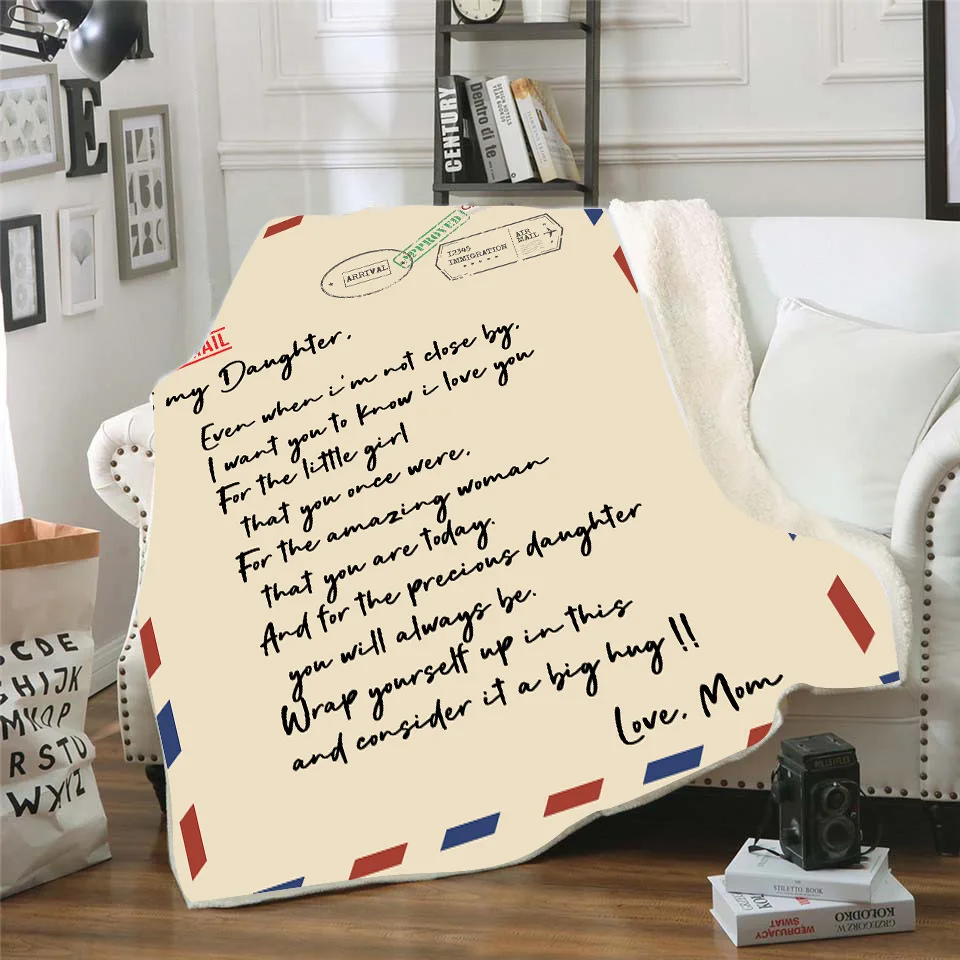 CENTURY
Dentro di te
DESIGN HOTELS
YEAR BOOK 01
E
APPROVED
ARRIVAL
12345
IMMIGRATION
AIR
MAIL
AIL
my Daughter,
Even when i'm not close by,
I want you to know i love you
For the little girl
that you once were,
For the amazing woman
that you are today.
And for the precious daughter
you will always be.
Wrap yourself up in this
and consider it a big hug!!
Love, Mom
BCDE
GHIJK
MNOP
RSTU
WXYZ
ROLLEIFLEX
STILETTO BOOK
WĘDRUJĄCY
ŚWIAT
GRZEGORZ W.
KOŁODKO